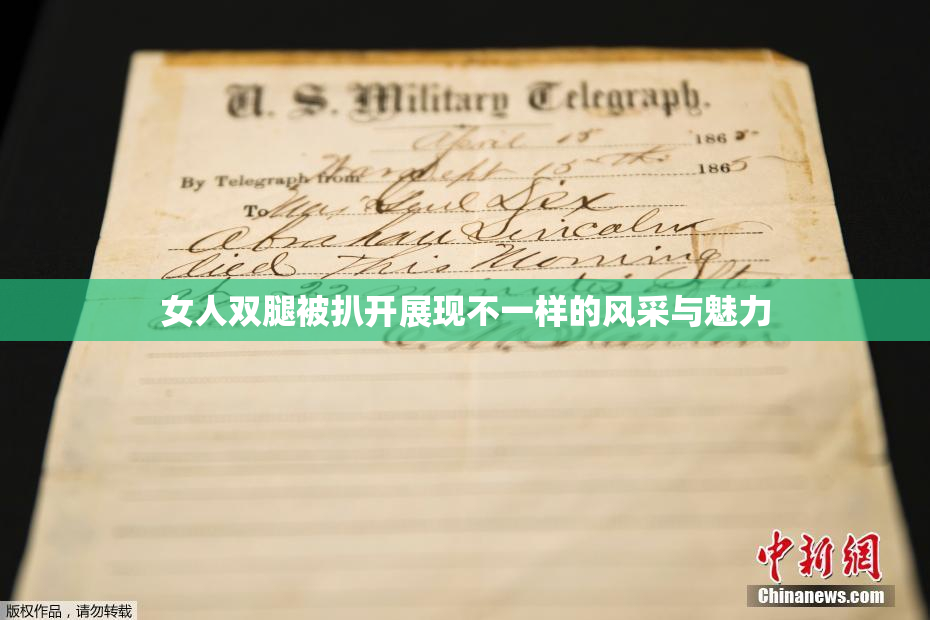 U. S. Military Telegraph.
April 15 1865
By Telegraph from War Dept 15th 1865
To Maj Genl Dix
Abraham Lincoln
died This Morning
at 22 minutes after
女人双腿被扒开展现不一样的风采与魅力
E. M. Stanton
中新网
Chinanews.com
版权作品，请勿转载